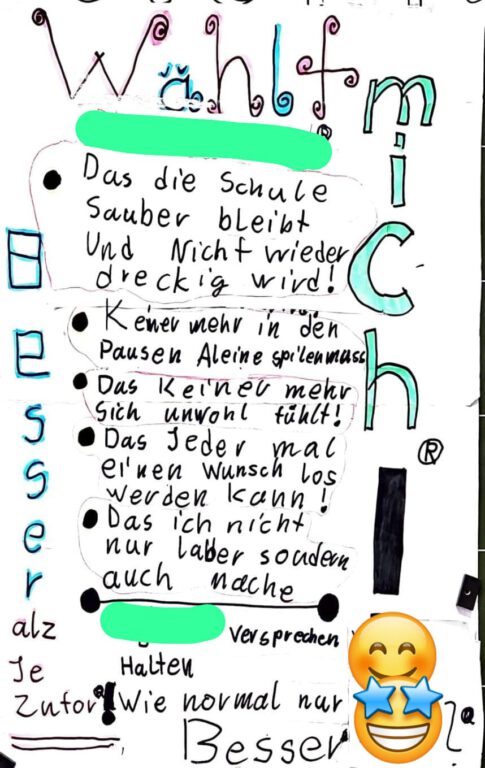 Wählt
mich!®
Das die Schule
Sauber bleibt
Und Nicht wieder
dreckig wird!
Keiner mehr in den
Pausen Aleine spilen muss
Das Keiner mehr
sich unwohl fühlt!
Das Jeder mal
einen Wunsch los
werden kann!
Das ich nicht
nur laber sondern
auch mache
Versprechen
Halten
Wie normal nur
Besser
Besser
alz
Je
Zufor!